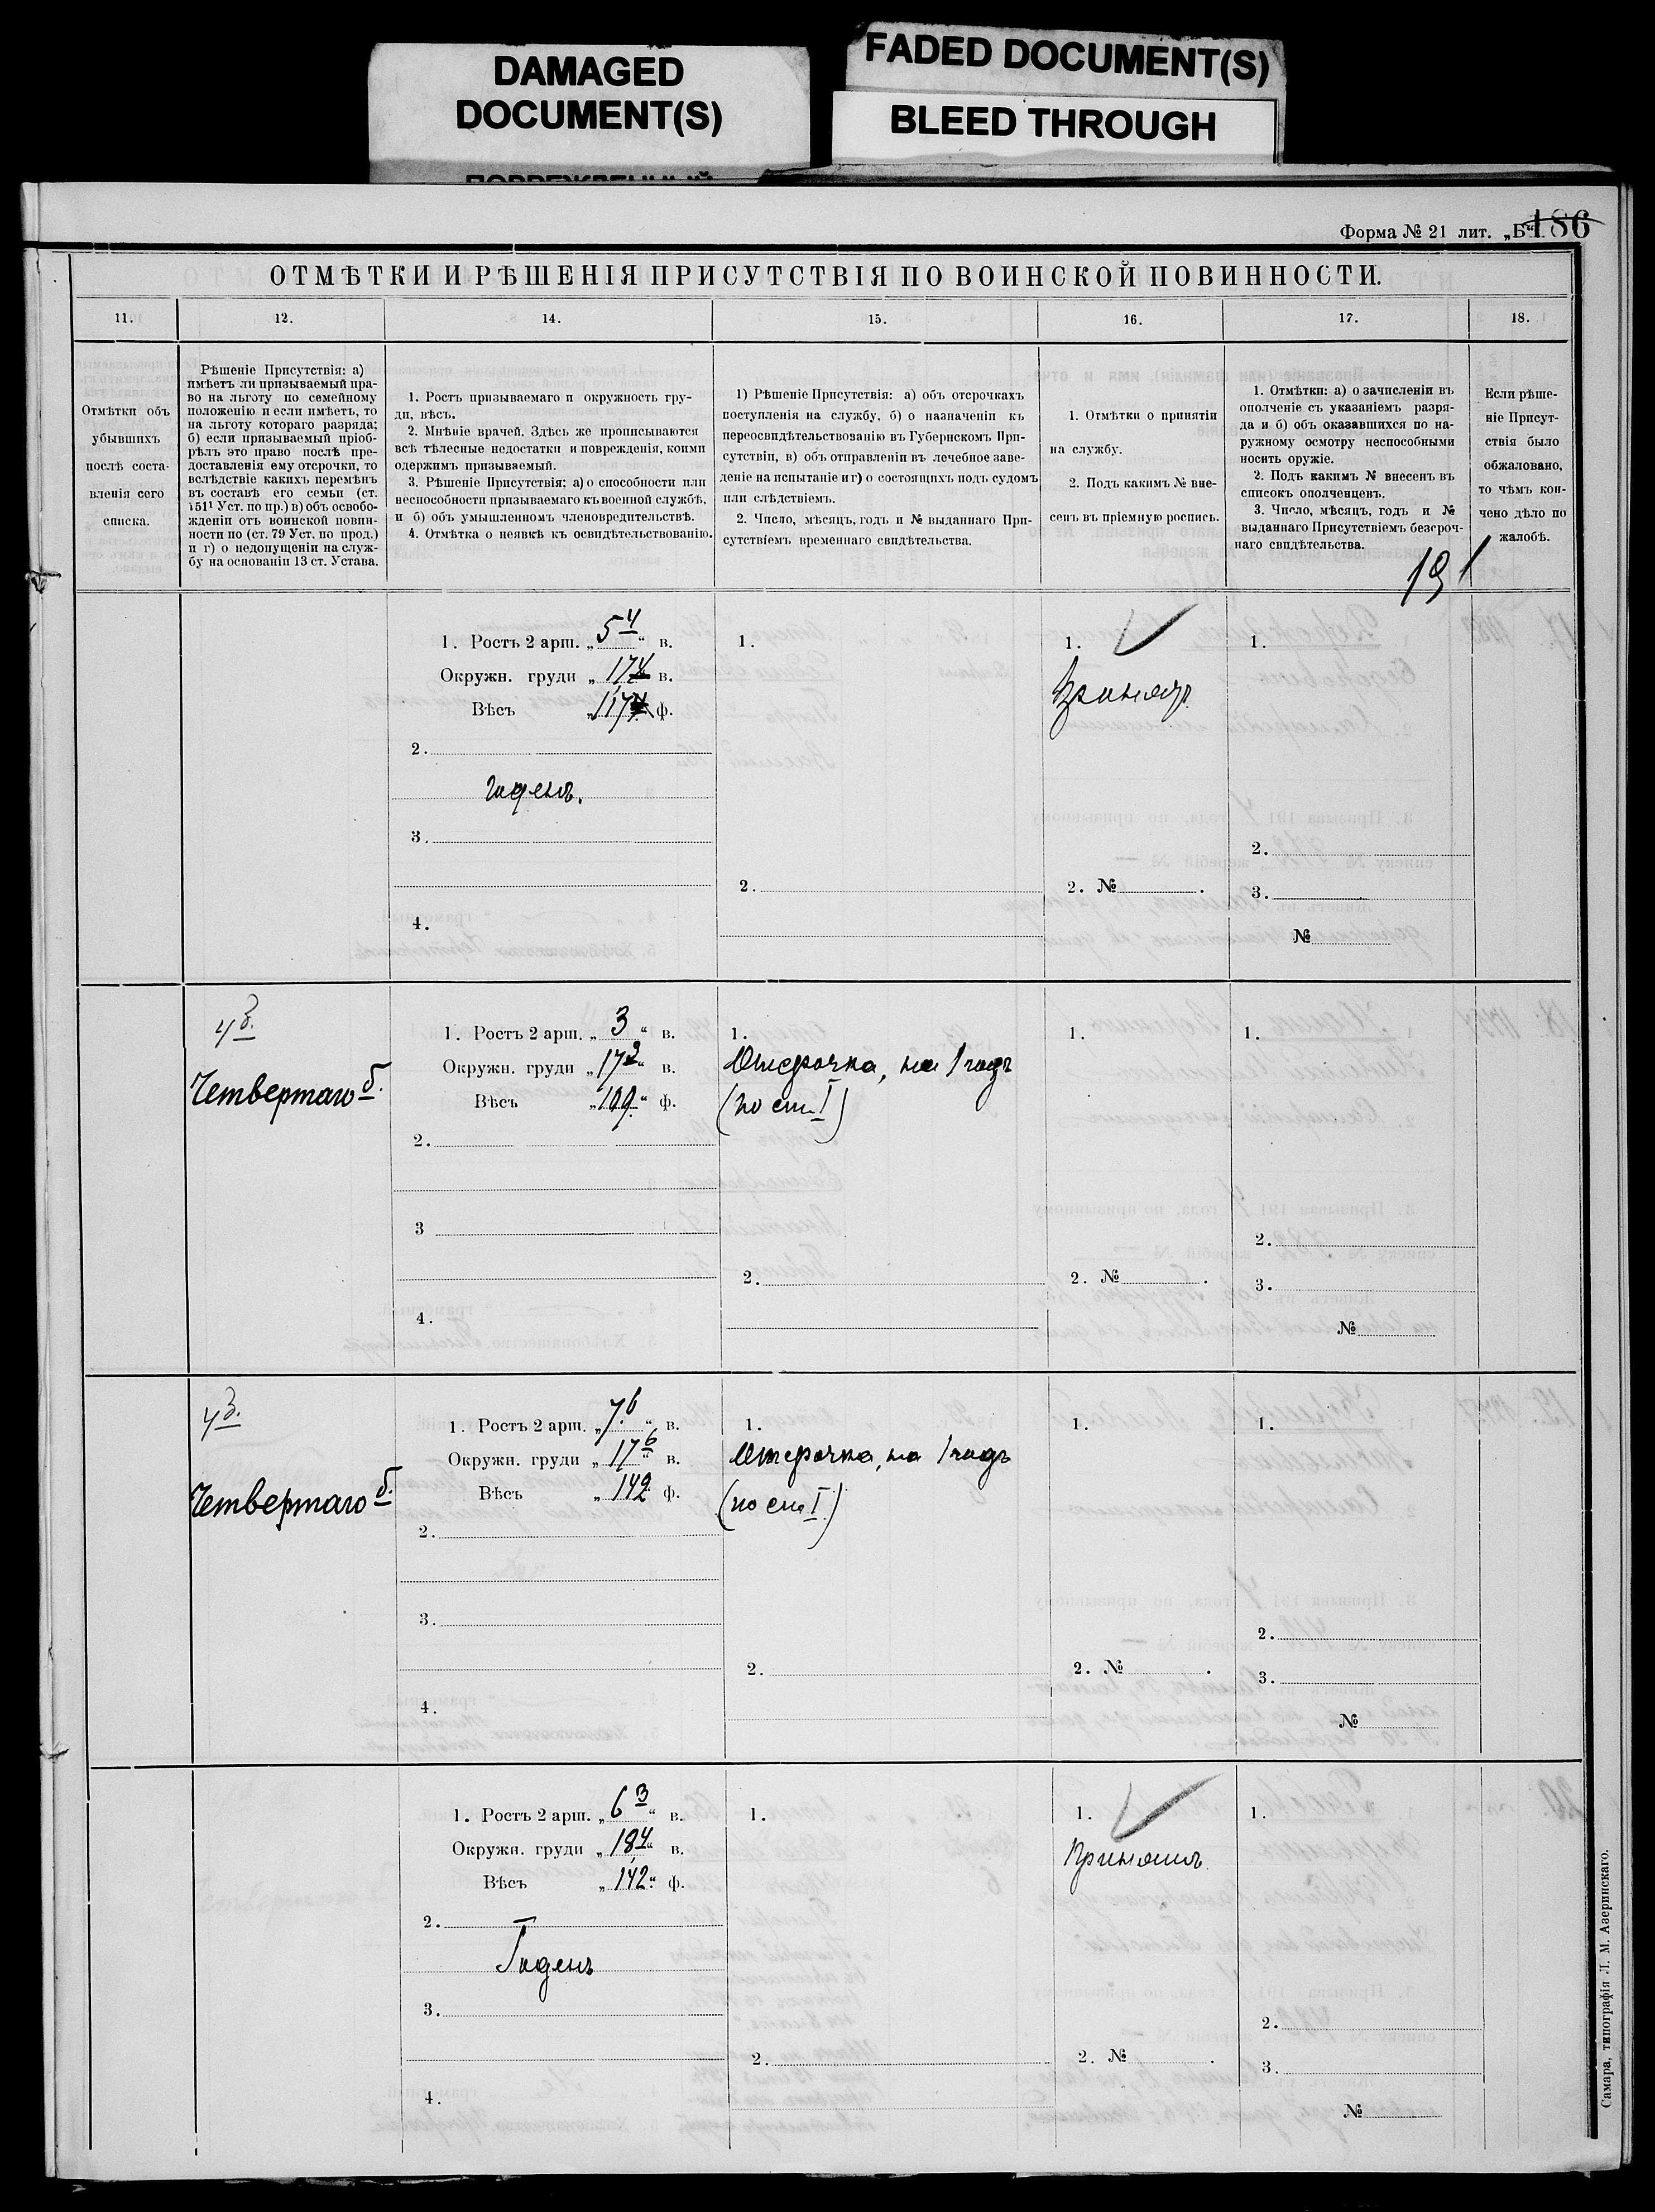 DAMAGED
DOCUMENT(S)
FADED DOCUMENT(S)
BLEED THROUGH
Форма № 21 лит. „Б“.
186
ОТМѢТКИ И РѢШЕНІЯ ПРИСУТСТВІЯ ПО ВОИНСКОЙ ПОВИННОСТИ.
11.
12.
14.
15.
16.
17.
18.
Отмѣтки объ
убывшихъ
послѣ соста-
вленія сего
списка.
Рѣшеніе Присутствія: а)
имѣетъ ли призываемый пра-
во на льготу по семейному
положенію и если имѣетъ, то
на льготу котораго разряда;
б) если призываемый пріоб-
рѣлъ это право послѣ пре-
доставленія ему отсрочки, то
вслѣдствіе какихъ перемѣнъ
въ составѣ его семьи (ст.
151¹ Уст. по пр.) в) объ освобо-
жденіи отъ воинской повин-
ности по (ст. 79 Уст. по прод.)
и г) о недопущеніи на служ-
бу на основаніи 13 ст. Устава.
1. Ростъ призываемаго и окружность гру-
ди, вѣсъ.
2. Мнѣніе врачей. Здѣсь же прописываются
всѣ тѣлесные недостатки и поврежденія, коими
одержимъ призываемый.
3. Рѣшеніе Присутствія: а) о способности или
неспособности призываемаго къ военной службѣ,
и б) объ умышленномъ членовредительствѣ.
4. Отмѣтка о неявкѣ къ освидѣтельствованію.
1) Рѣшеніе Присутствія: а) объ отсрочкахъ
поступленія на службу, б) о назначеніи къ
переосвидѣтельствованію въ Губернскомъ При-
сутствіи, в) объ отправленіи въ лечебное заве-
деніе на испытаніе и г) о состоящихъ подъ судомъ
или слѣдствіемъ.
2. Число, мѣсяцъ, годъ и № выданнаго При-
сутствіемъ временнаго свидѣтельства.
1. Отмѣтки о принятіи
на службу.
2. Подъ какимъ № вне-
сенъ въ пріемную роспись.
1. Отмѣтки: а) о зачисленіи въ
ополченіе съ указаніемъ разря-
да и б) объ оказавшихся по на-
ружному осмотру неспособными
носить оружіе.
2. Подъ какимъ № внесенъ въ
списокъ ополченцевъ.
3. Число, мѣсяцъ, годъ и №
выданнаго Присутствіемъ безсроч-
наго свидѣтельства.
Если рѣше-
ніе Присут-
ствія было
обжаловано,
то чѣмъ кон-
чено дѣло по
жалобѣ.
191
1. Ростъ 2 арш. „5 4“ в.
Окружн. груди „ 17 в.
Вѣсъ „ 117 ф.
2.
годенъ.
3.
4.
1.
2.
1.
Принятъ
2. №
1.
2.
3.
№
4 б.
Четвертаго б.
1. Ростъ 2 арш. „ 3 “ в.
Окружн. груди „17 2“ в.
Вѣсъ „109“ ф.
2.
3
4.
1.
Отсрочка, на 1 годъ
(по ст. I)
2.
1.
2. №
1.
2.
3.
№
4 б.
Четвертаго б.
1. Ростъ 2 арш. „7 6“ в.
Окружн. груди „ 17 6“ в.
Вѣсъ „ 142 ф.
2.
3.
4.
1.
Отсрочка, на 1 годъ
(по ст. I)
2.
1.
2. №
1.
2.
3.
№
1. Ростъ 2 арш. „6 3“ в.
Окружн. груди „ 18 4“ в.
Вѣсъ „ 142“ ф.
2.
Годенъ
3.
4.
1.
2.
1.
Принятъ
2. №
1.
2.
3.
№
Самара, типографія Л. М. Азеринскаго.